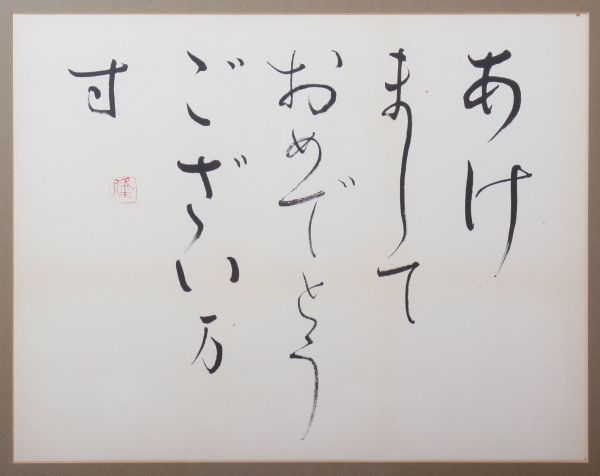 あけ
まして
おめでとう
ござい万
寸
隆